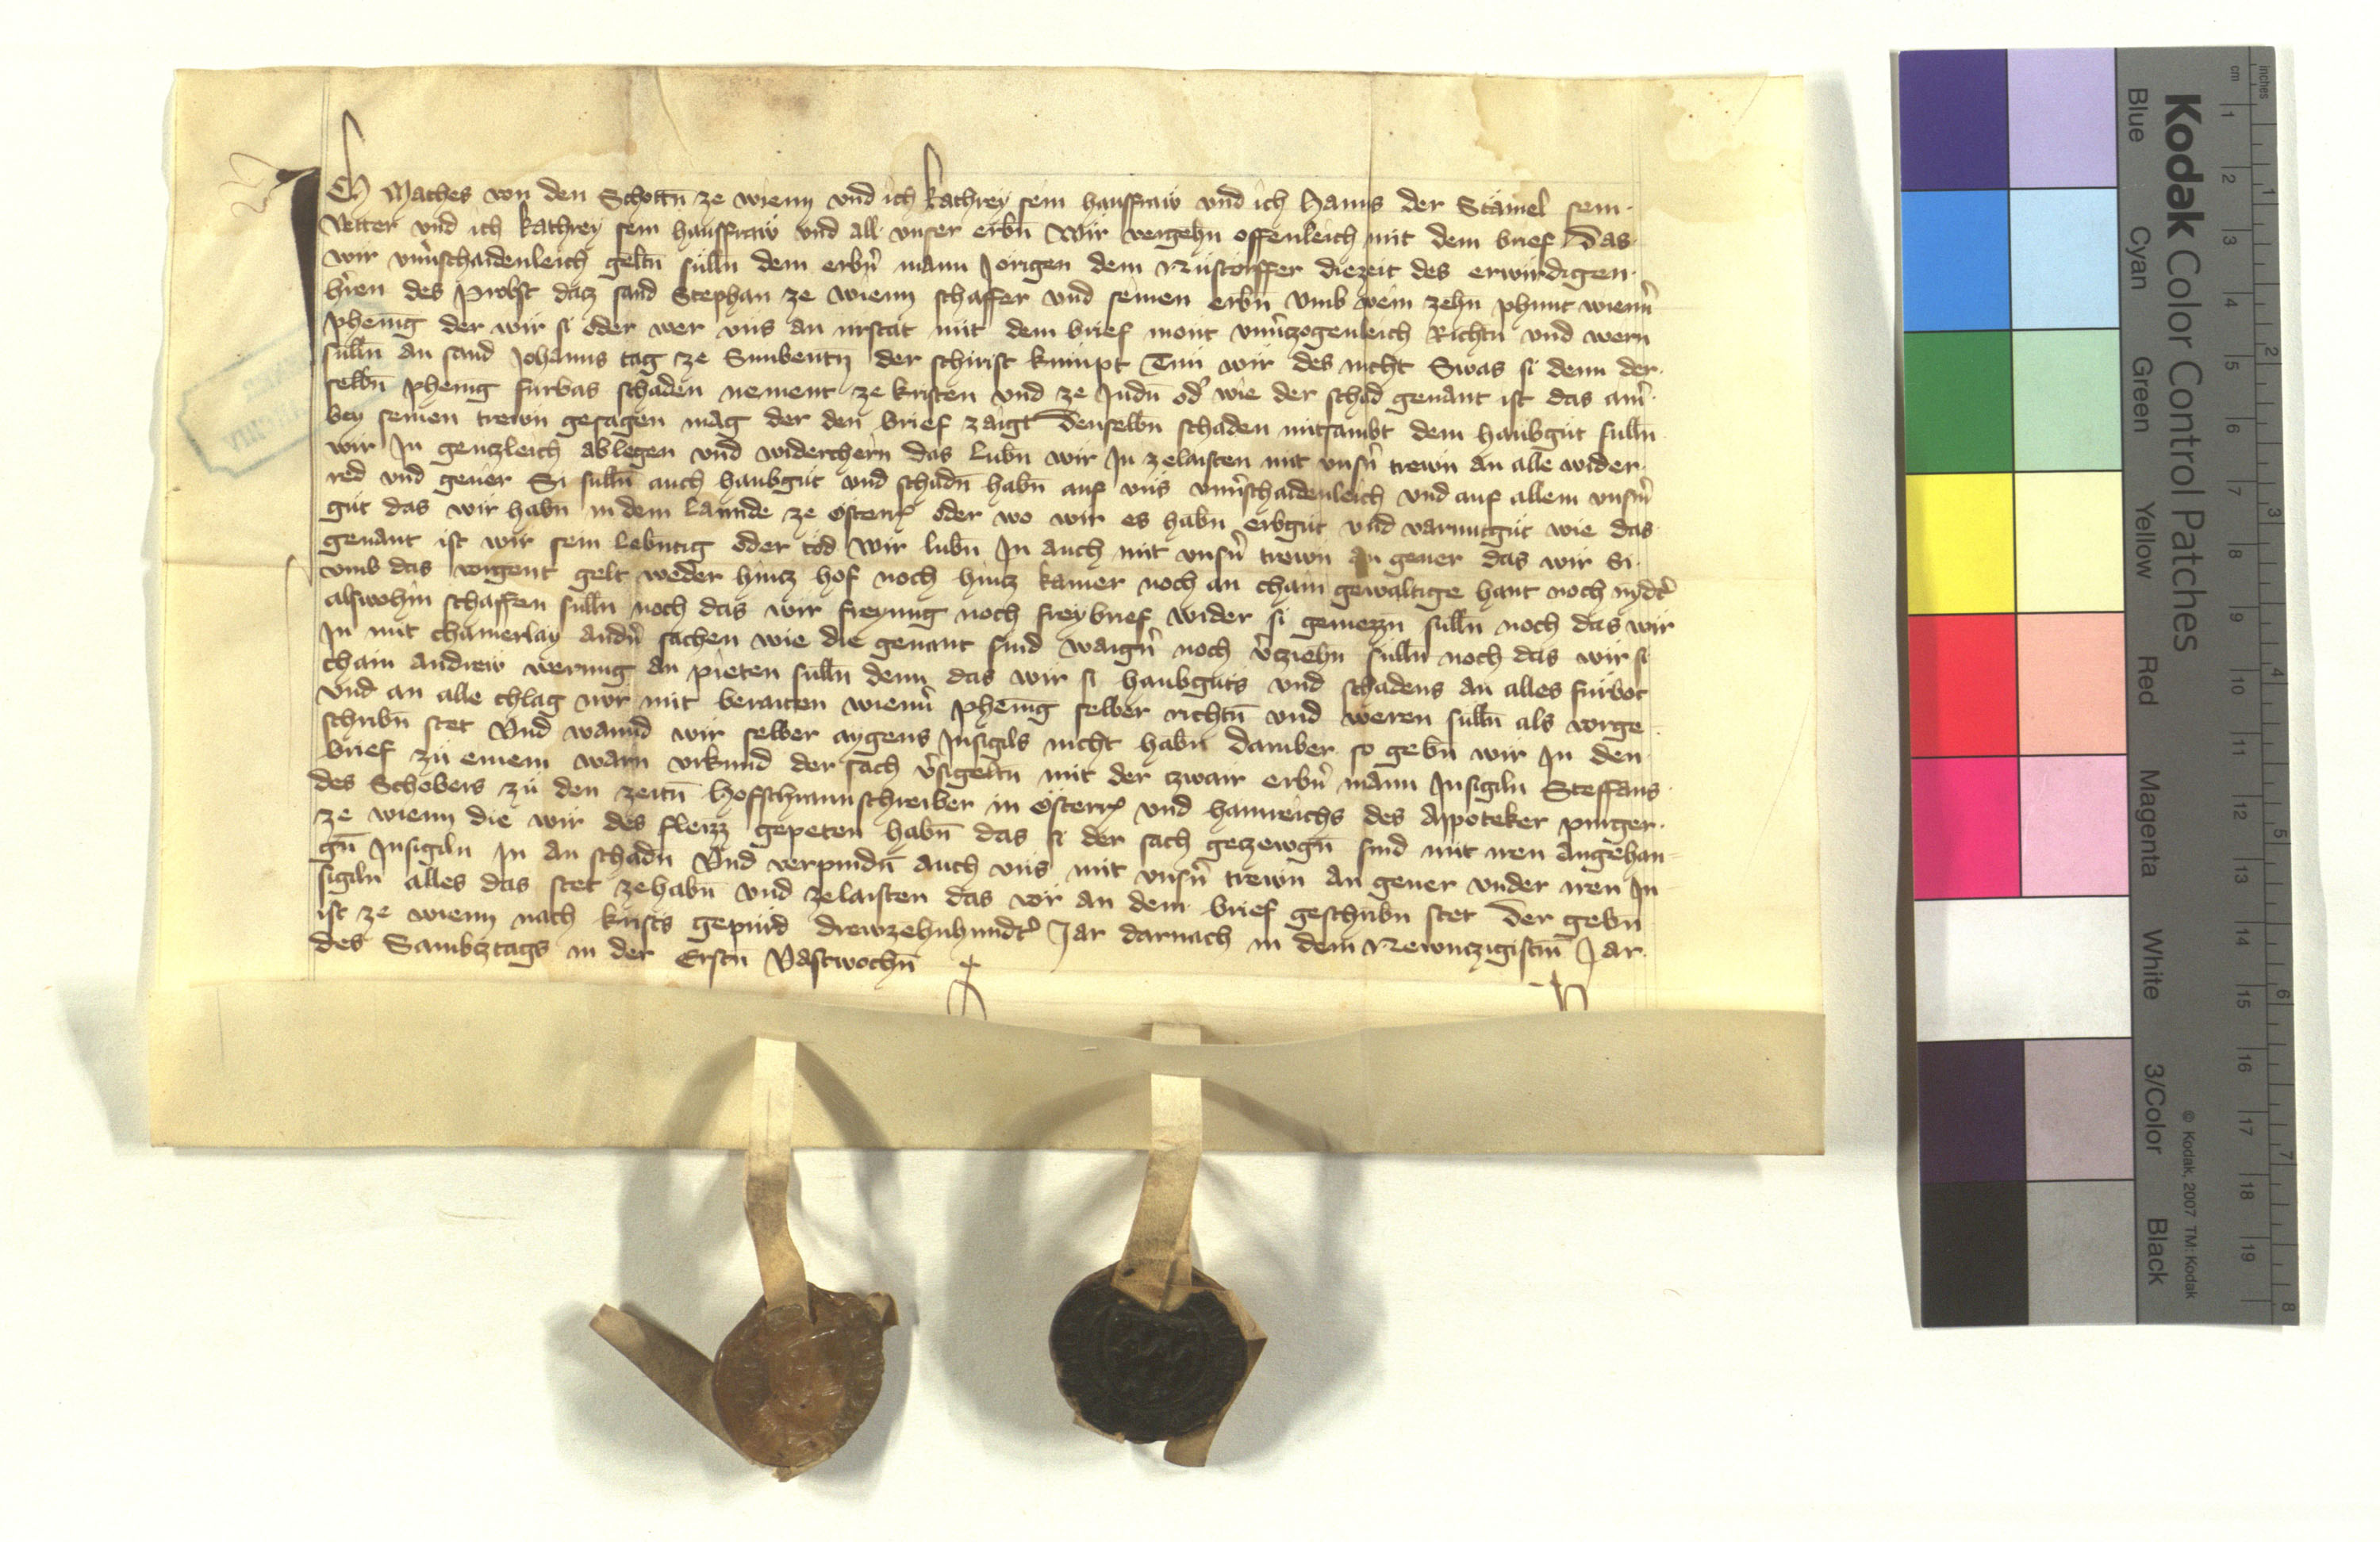 Ich Mathes von den Schottn̄ ze wienn vnd ich kathrey sein hausfraw vnd ich Hanns der Stämel sein
Vetter vnd ich kathrey sein hausfraw vnd all vnser erbn̄ Wir veriehn offenleich mit dem brief Das
wir vnu̇schaidenleich geltn̄ sülln̄ dem erbn̄ mann Jorigen dem Nüstorffer diezeit des erwirdigen
hr̄en des Probst datz sand Stephan ze wienn schaffer vnd seinen erbn̄ vmb wein zehn phunt wienn̄
phenīg der wir si oder wer vns an irr stat mit dem brief mont vnu̇czogenleich Richtn̄ vnd wern
sülln̄ an sand Johanns tag ze Sunbentn̄ der schirist kumpt Tun wir des nicht Swas si denn der
selbn̄ phenīg furbas schaden nement ze kristen vnd ze Judn̄ od̓ wie der schad genant ist das ain̓
bey seinen trewn gesagen mag der den brief zaigt Denselbn̄ schaden mitsambt dem haubgut sulln̄
wir In genczleich ablegen vnd widerchern das lubn̄ wir In zelaisten mit vnsn̓ trewn an alle wider
red vnd geuer Si sulln̄ auch haubgut vnd schadn̄ habn̄ auf vns vnu̇schaidenleich vnd auf allem vnsm̓
gut das wir habn̄ in dem Lannde ze Österr̄ oder wo wir es habn̄ erbgut vnd varuntgut wie das
genant ist wir sein lebntig oder tod Wir lubn̄ In auch mit vnsn̓ trewn an geuer das wir Si
vmb das vorgent gelt weder hincz hof noch hincz kamer noch an chain gewaltige hant noch nydt̓
alswohin schaffen sulln̄ noch das wir freyung noch freybrief wider si geniezzn̄ sulln̄ noch das wir
In mit chainerlay andn̓ sachen wie die genant sind waign̓ noch v̓cziehn sulln̄ noch das wir si
chain andrew werung an pieten sulln̄ denn das wir si haubguts vnd schadens an alles furbot
vnd an alle chlag nvr mit beraiten wienn̓ phenīg selber richtn̄ vnd weren sulln̄ als vorge
schribn̄ stet Vnd wannd wir selber aygens Insigils nicht habn̄ Daruber so gebn̄ wir In den
brief zu einem warn vrkund der sach v̓sigeltn̄ mit der zwair erbn̓ mann Insigiln Steffans
des Schobers zu den zeitn̄ Hofschrannschreiber in Österr̄ vnd hainreichs des Appoteker purger
ze wienn die wir des fleizz gepeten habn̄ das si der sach geczewgn̄ sind mit iren Angehan=
gn̄ Insigiln In an schadn̄ Vnd verpindn̄ auch vns mit vnsn̓ trewn an geuer vnder iren In
sigiln alles das stet zehabn̄ vnd zelaisten das vor an dem brief geschribn stet Der gebn̄
ist ze wienn nach krists gepurd drewzehnhundt̓ Jar darnach in dem Newnczigistn̄ Jar
des Sambcztags in der Erstn̄ Vastwochn̄
Kodak Color Control Patches
© Kodak, 2007 TM: Kodak
Blue Cyan Green Yellow Red Magenta White 3/Color Black
inches 1 2 3 4 5 6 7 8
cm 1 2 3 4 5 6 7 8 9 10 11 12 13 14 15 16 17 18 19